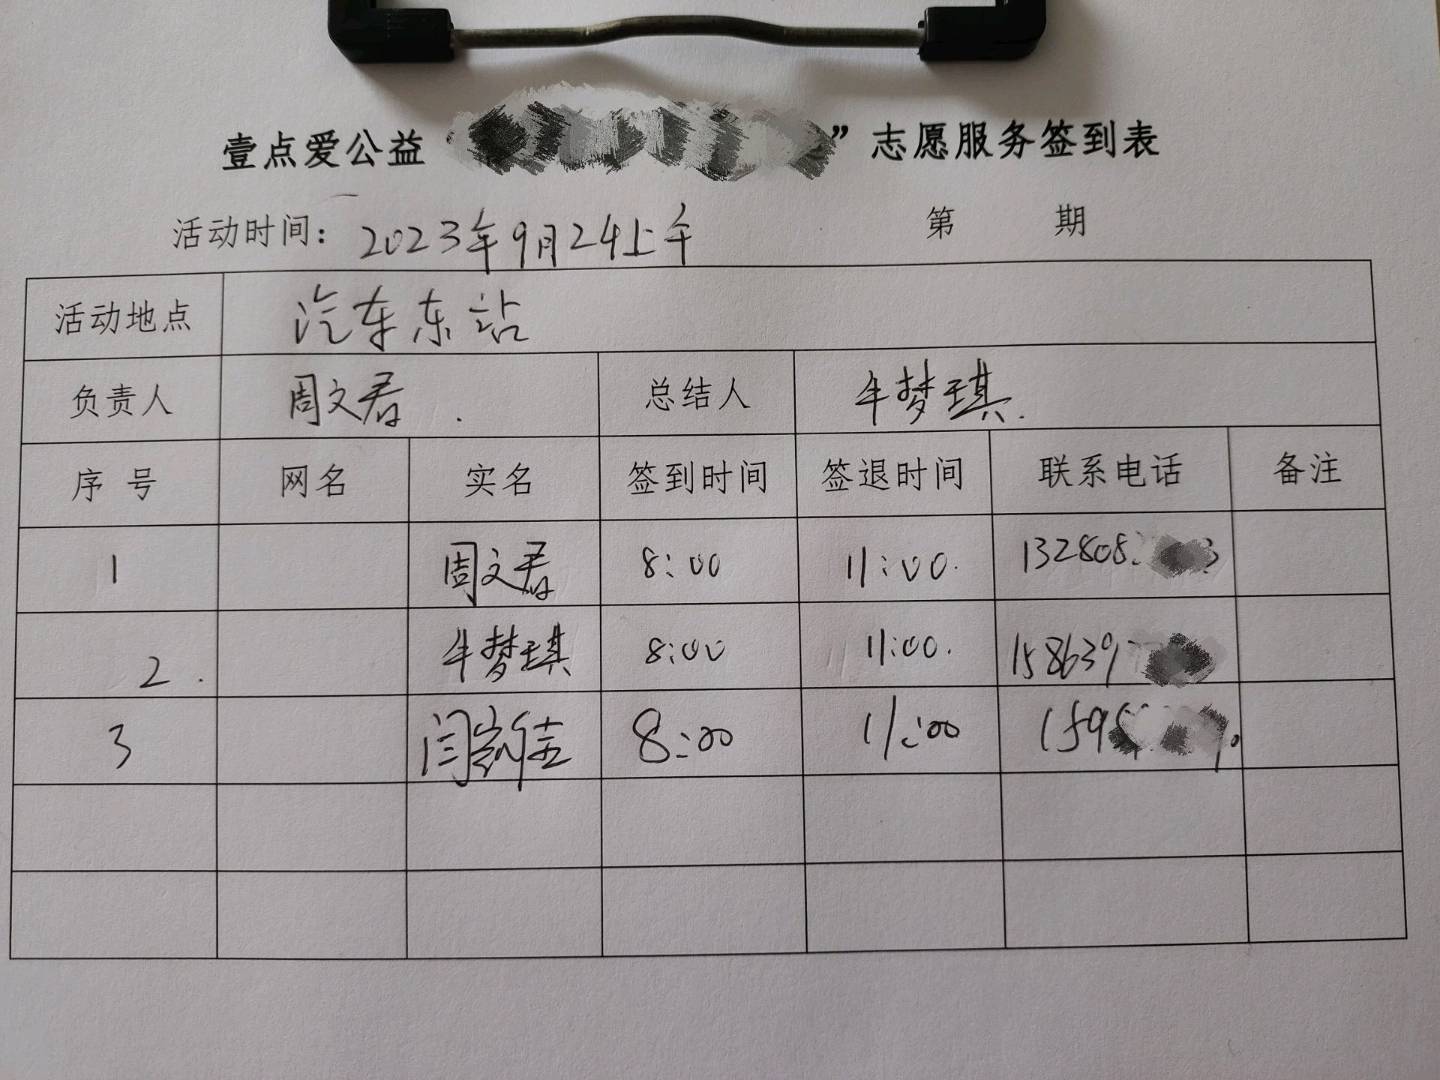 壹点爱公益“ ”志愿服务签到表
活动时间: 2023年9月24上午 第 期
活动地点 汽车东站
负责人 周文君. 总结人 牛梦琪.
序号 网名 实名 签到时间 签退时间 联系电话 备注
1 周文君 8:00 11:00. 132808
2. 牛梦琪 8:00 11:00. 158639
3 8:00 11:00 159